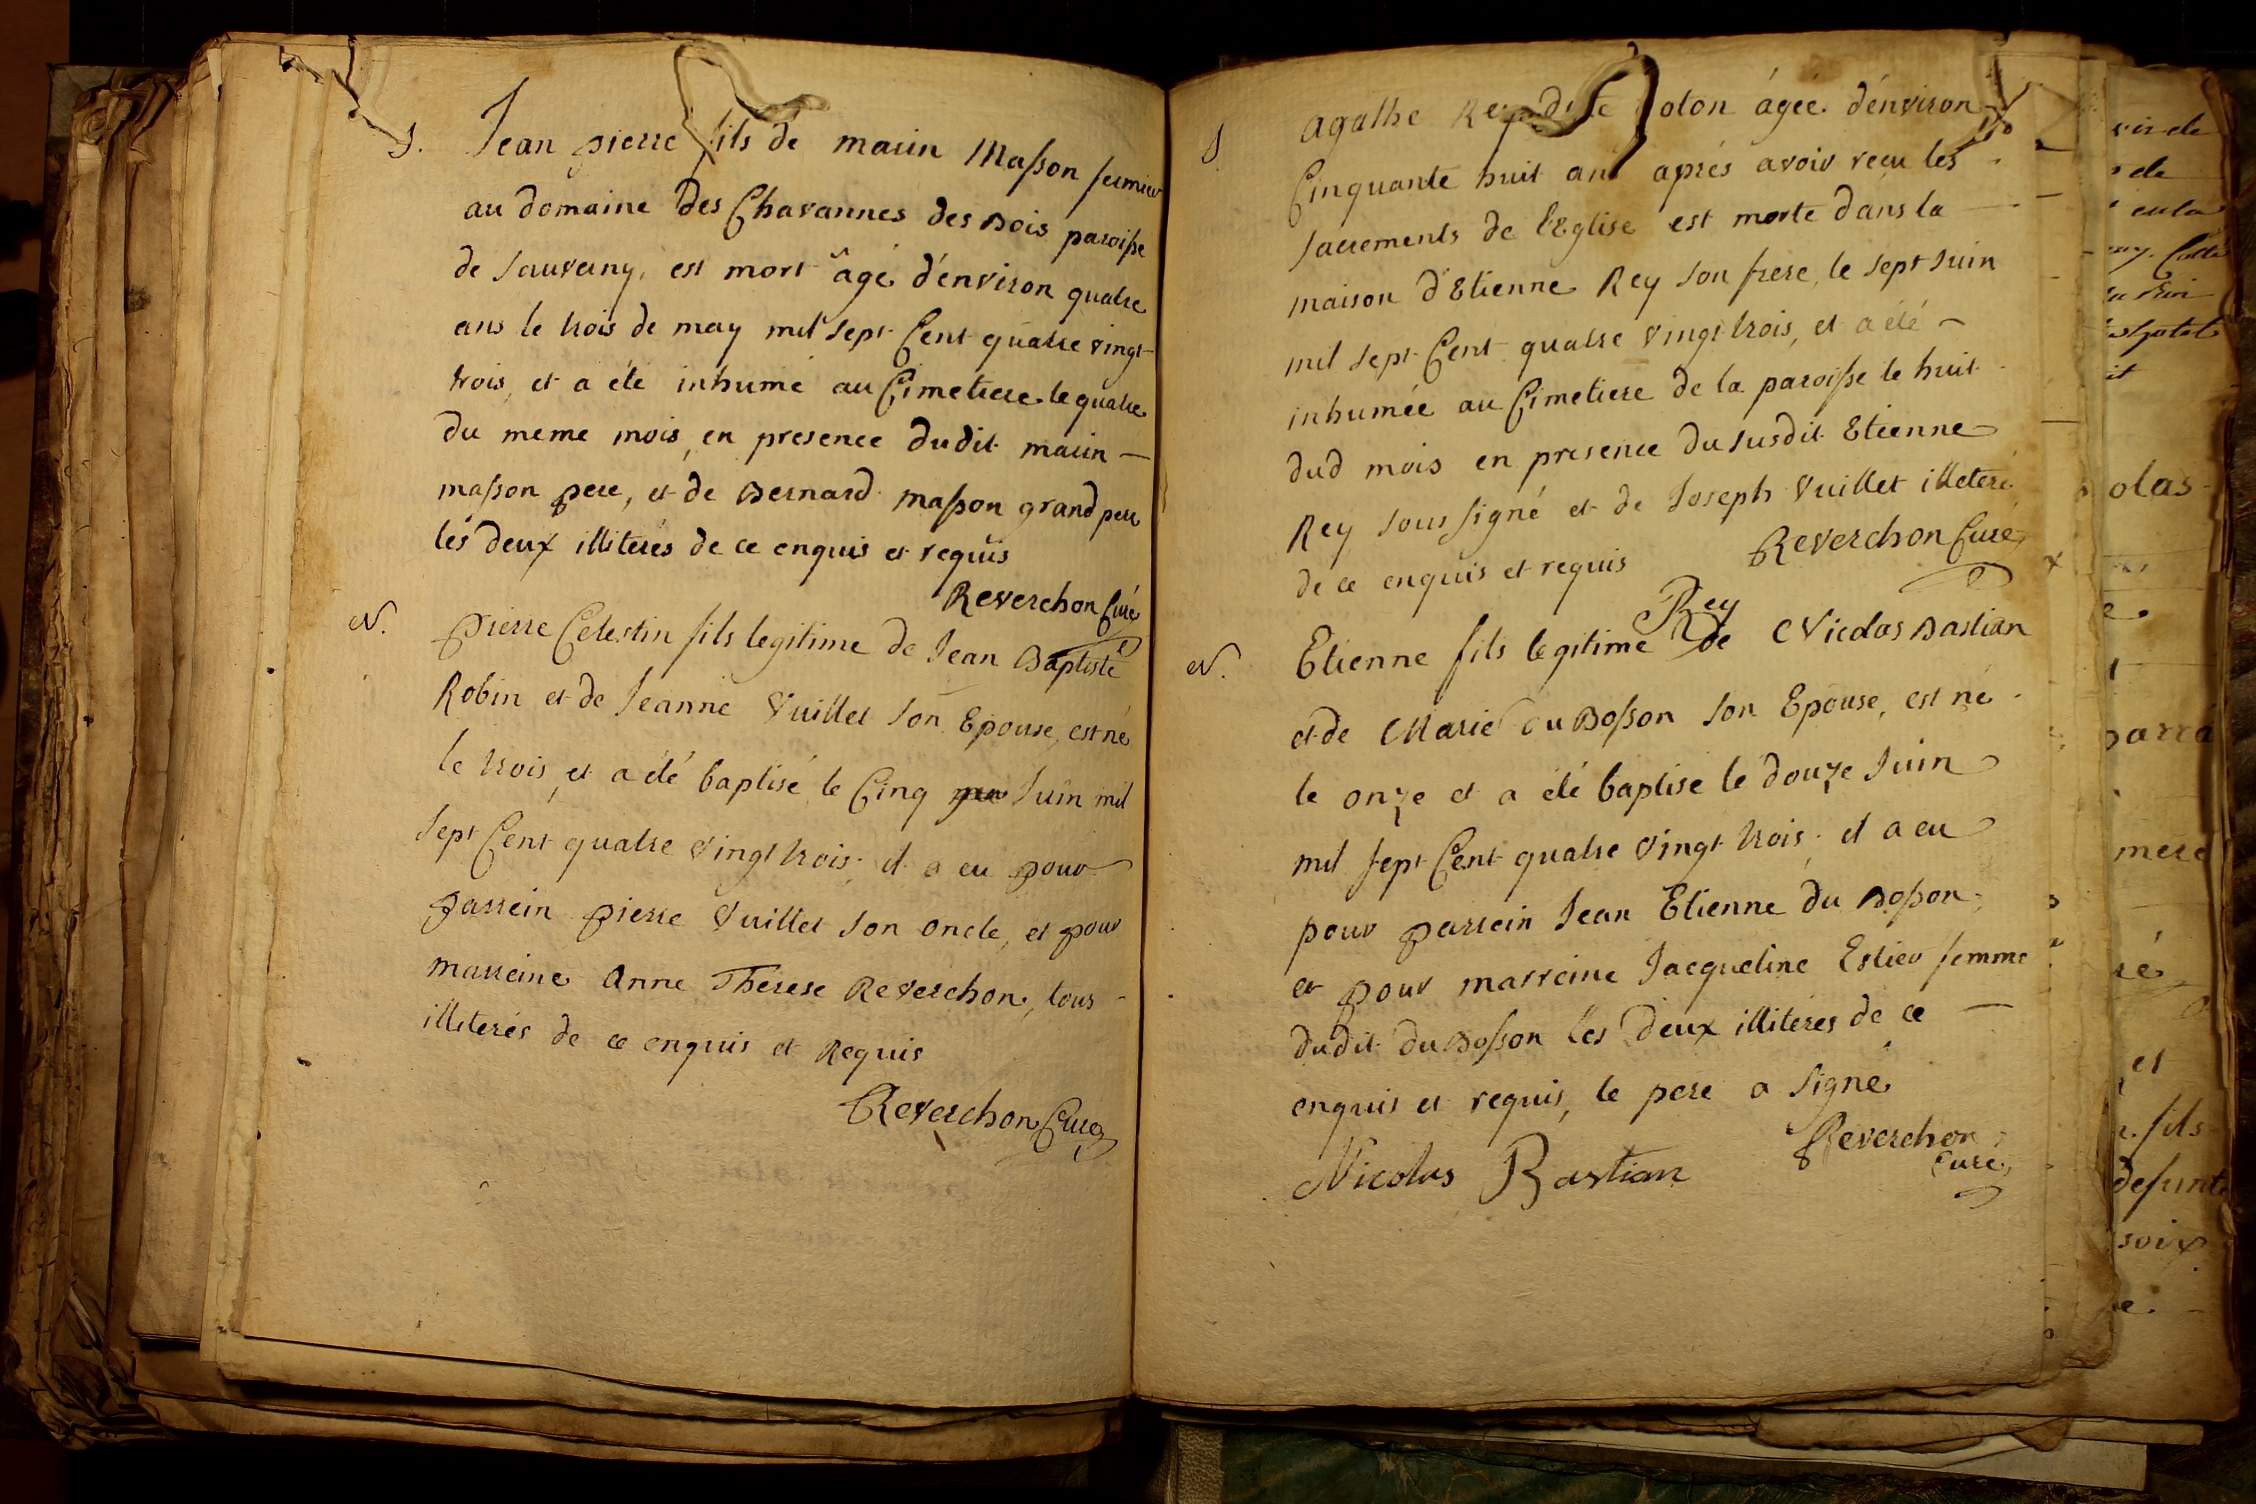 S. Jean pierre fils de marin Masson fermier
au domaine des Chavannes des Bois paroisse
de Sauverny, est mort âgé d'énviron quatre
ans le trois de may mil sept Cent quatre vingt
trois, et a été inhumé au Cimetiere le quatre
du meme mois, en presence dudit marin —
masson pere, et de Bernard masson grand pere
lés deux illiterés de ce enquis et requis
Reverchon Curé
N. Pierre Celestin fils legitime de Jean Baptiste
Robin et de Jeanne Vuillet son Epouse, est né
le trois, et a été baptisé le Cinq Juin mil
sept Cent quatre vingt trois. il a eu pour
parrein pierre Vuillet son oncle, et pour
marreine Anne Therese Reverchon, tous
illiterés de ce enquis et Requis
Reverchon Curé
S. Agathe Rey dite ágée d'énviron
Cinquante huit ans aprés avoir reçu les
sacrements de l'Eglise est morte dans la —
maison d'Etienne Rey son frere, le sept Juin
mil sept Cent quatre vingt trois, et a été —
inhumée au Cimetiere de la paroisse le huit
dud mois en presence du susdit Etienne
Rey sous signé et de Joseph Vuillet illeteré
de ce enquis et requis Reverchon Curé
Rey
N. Etienne fils legitime de Nicolas Bastian
et de Marie Du Bosson son Epouse, est né
le onze et a été baptisé le douze Juin
mil sept Cent quatre vingt trois. il a eu
pour parrein Jean Etienne du Bosson,
et pour marreine Jacqueline Estier femme
dudit du Bosson les deux illiteres de ce —
enquis et requis, le pere a signé
Nicolas Bastian Reverchon
Curé